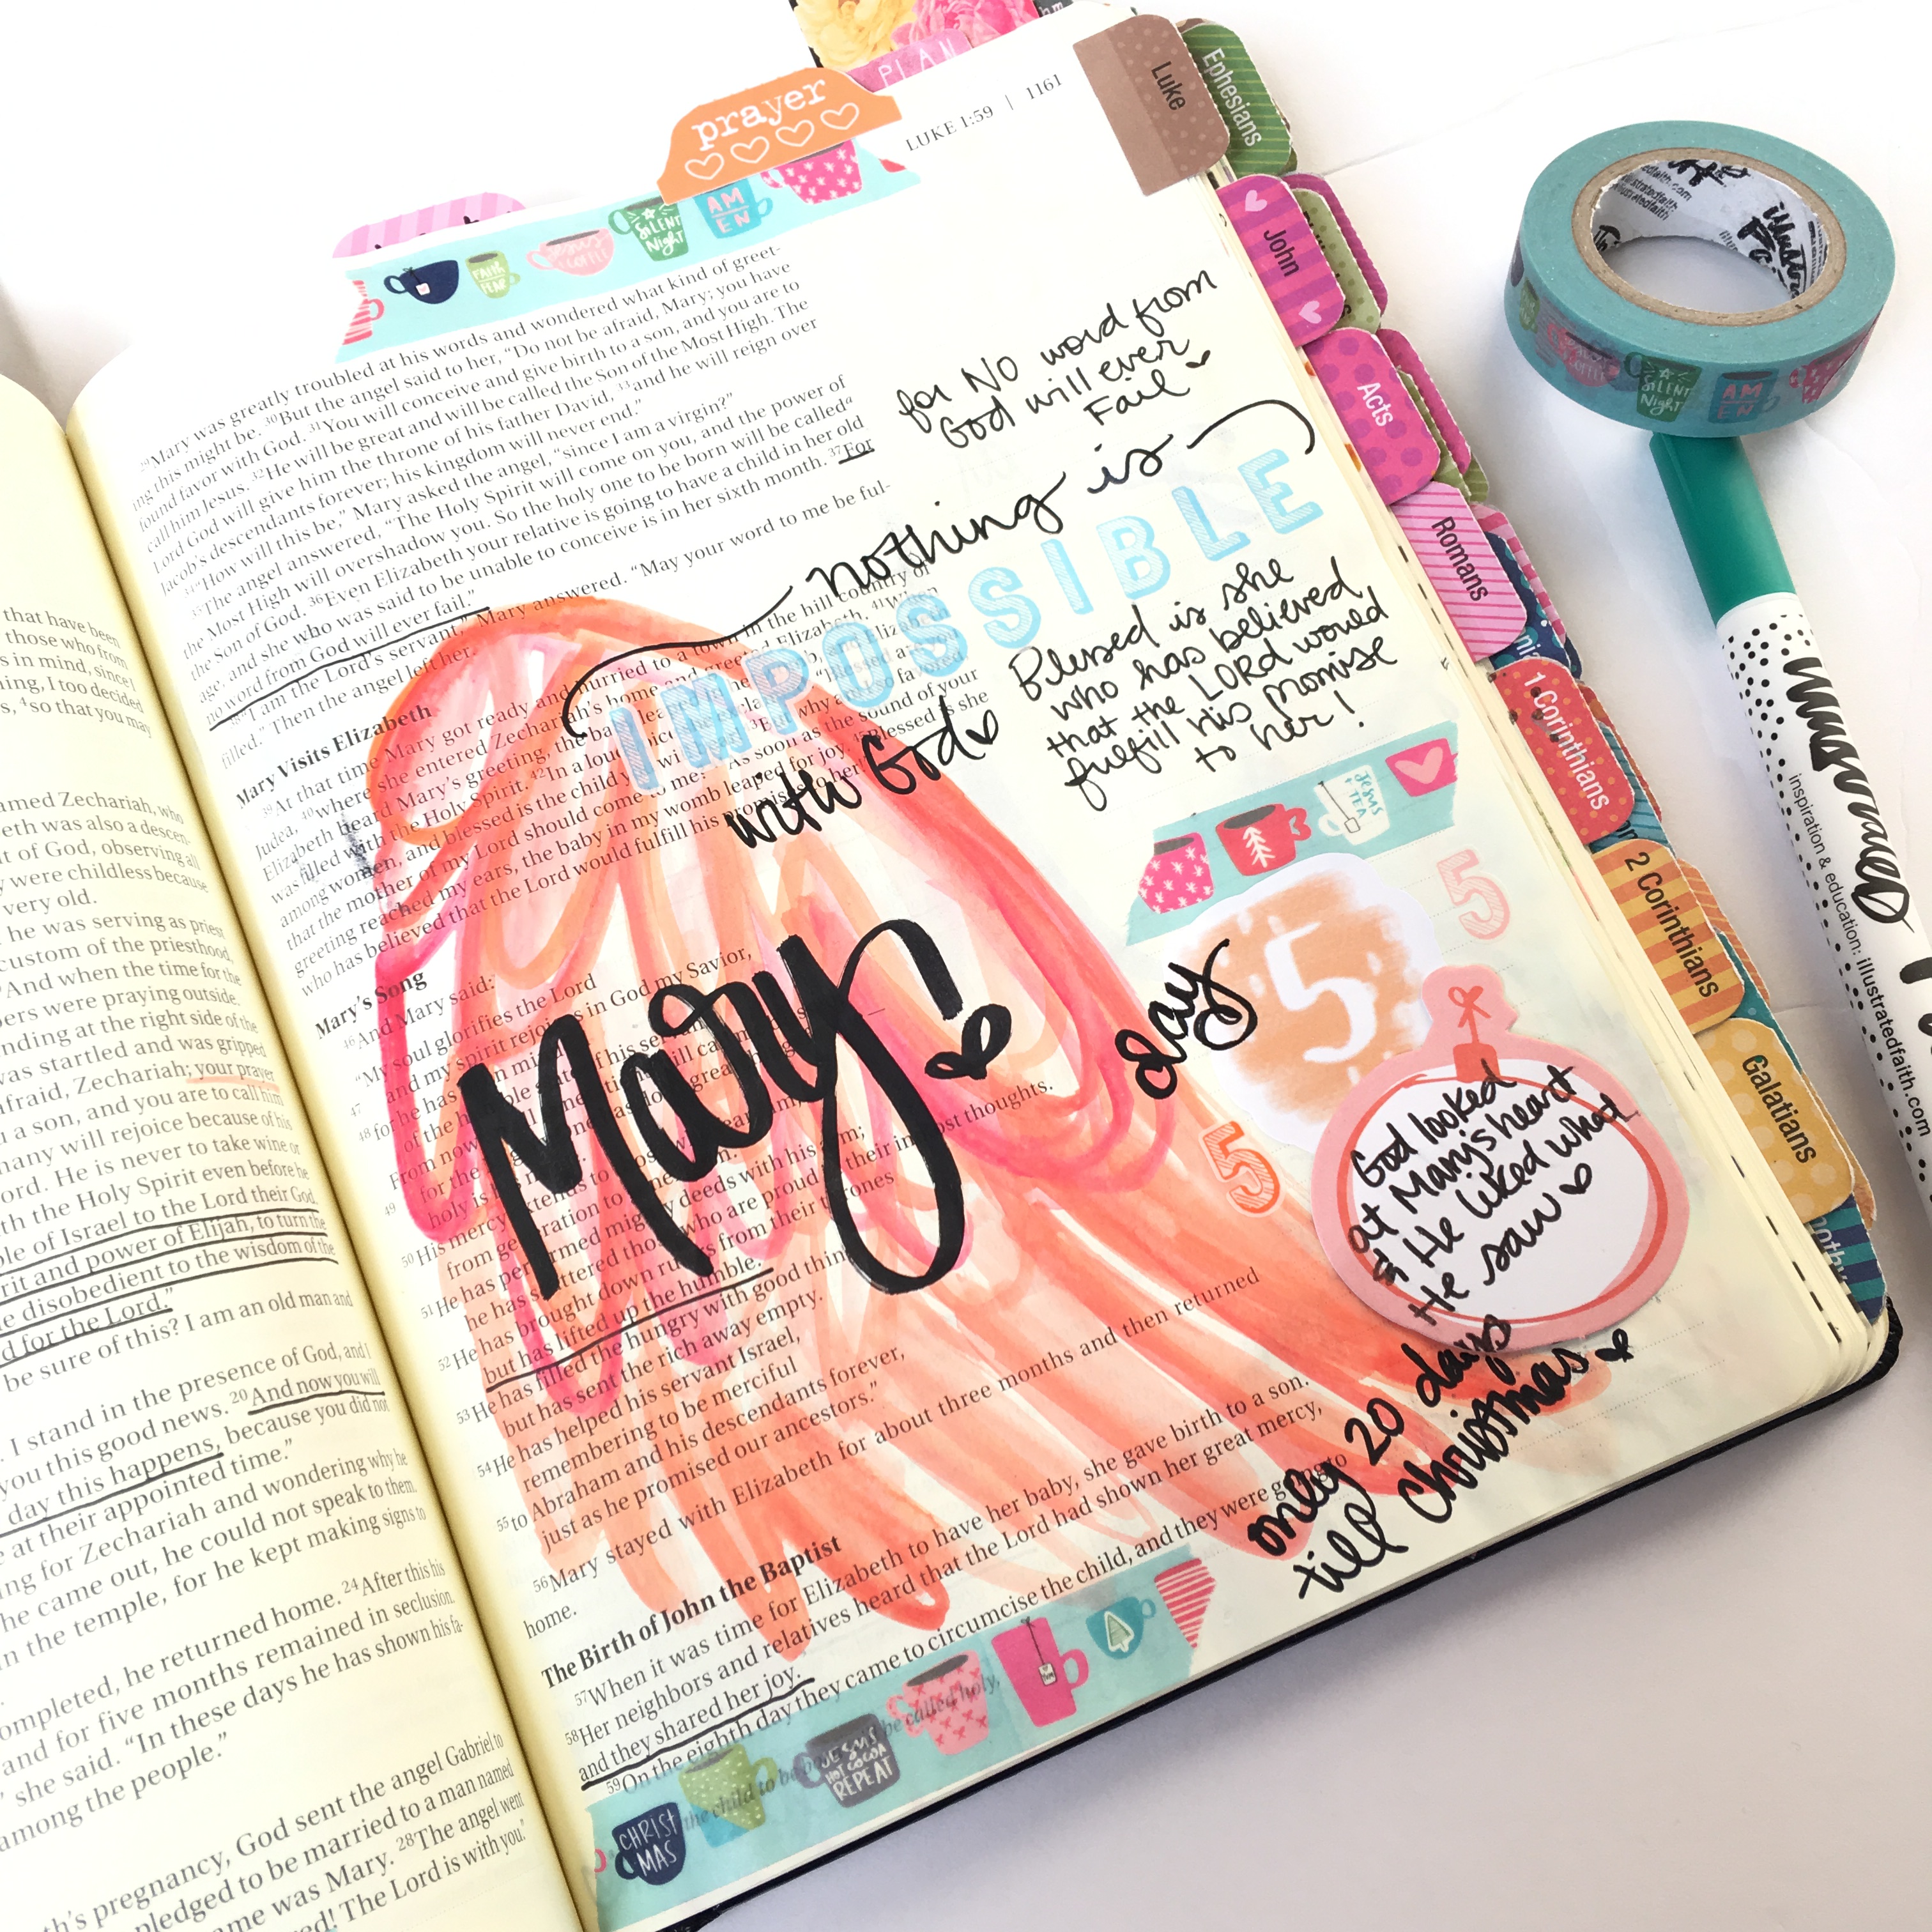 PLAN
prayer
LUKE 1:59 | 1161
Luke
Ephesians
John
Acts
Romans
1 Corinthians
2 Corinthians
Galatians
FAITH
SILENT
Night
AM
EN
29Mary was greatly troubled at his words and wondered what kind of greet-
ing this might be. 30But the angel said to her, “Do not be afraid, Mary; you have
found favor with God. 31You will conceive and give birth to a son, and you are to
call him Jesus. 32He will be great and will be called the Son of the Most High. The
Lord God will give him the throne of his father David, 33and he will reign over
Jacob’s descendants forever; his kingdom will never end.”
34“How will this be,” Mary asked the angel, “since I am a virgin?”
35The angel answered, “The Holy Spirit will come on you, and the power of
the Most High will overshadow you. So the holy one to be born will be called
the Son of God. 36Even Elizabeth your relative is going to have a child in her old
age, and she who was said to be unable to conceive is in her sixth month. 37For
no word from God will ever fail.”
38“I am the Lord’s servant,” Mary answered. “May your word to me be ful-
filled.” Then the angel left her.
Mary Visits Elizabeth
39At that time Mary got ready and hurried to a town in the hill country of
Judea, 40where she entered Zechariah’s home and greeted Elizabeth. 41When
Elizabeth heard Mary’s greeting, the baby
was filled with the Holy Spirit. 42In a loud
among women, and blessed is the child
that the mother of my Lord should come to me? As soon as the sound of your
greeting reached my ears, the baby in my womb leaped for joy. Blessed is she
who has believed that the Lord would fulfill his promises to her
Mary’s Song
46And Mary said:
“My soul glorifies the Lord
47 and my spirit rejoices in God my Savior,
48 for he has been mindful
of the humble state of his servant
From now on
49 for the
holy is
50His mercy extends to
from generation to
51He has performed mighty deeds with his arm;
he has scattered those who are proud in their inmost thoughts.
52He has brought down rulers from their thrones
but has lifted up the humble.
53He has filled the hungry with good things
but has sent the rich away empty.
54He has helped his servant Israel,
remembering to be merciful
55to Abraham and his descendants forever,
just as he promised our ancestors.”
56Mary stayed with Elizabeth for about three months and then returned
home.
The Birth of John the Baptist
57When it was time for Elizabeth to have her baby, she gave birth to a son.
58Her neighbors and relatives heard that the Lord had shown her great mercy,
and they shared her joy.
59On the eighth day they came to circumcise the child, and they were going to
for No word from
God will ever
Fail
nothing is
IMPOSSIBLE
with God
Blessed is she
who has believed
that the LORD would
fulfill His promise
to her!
JESUS
TEA
Mary
day
5
5
5
God looked
at Mary's heart
He liked what
He saw
only 20 days
till Christmas
CHRIST
MAS
JESUS
HOT COCOA
REPEAT
that have been
those who from
s in mind, since I
ning, I too decided
s, 4so that you may
amed Zechariah, who
eth was also a descen-
t of God, observing all
y were childless because
very old.
he was serving as priest
custom of the priesthood,
And when the time for the
ers were praying outside.
nding at the right side of the
was startled and was gripped
afraid, Zechariah; your prayer
a son, and you are to call him
many will rejoice because of his
ord. He is never to take wine or
th the Holy Spirit even before he
ple of Israel to the Lord their God.
rit and power of Elijah, to turn the
e disobedient to the wisdom of the
d for the Lord.”
be sure of this? I am an old man and
. I stand in the presence of God, and I
you this good news. 20And now you will
day this happens, because you did not
e at their appointed time.”
ng for Zechariah and wondering why he
he came out, he could not speak to them.
n the temple, for he kept making signs to
ompleted, he returned home. 24After this his
and for five months remained in seclusion.
she said. “In these days he has shown his fa-
among the people.”
th’s pregnancy, God sent the angel Gabriel to
pledged to be married to a man named
ame was Mary. 28The angel went
red! The Lord is with you.”
SILENT
Night
AM
EN
inspiration & education: illustratedfaith.com